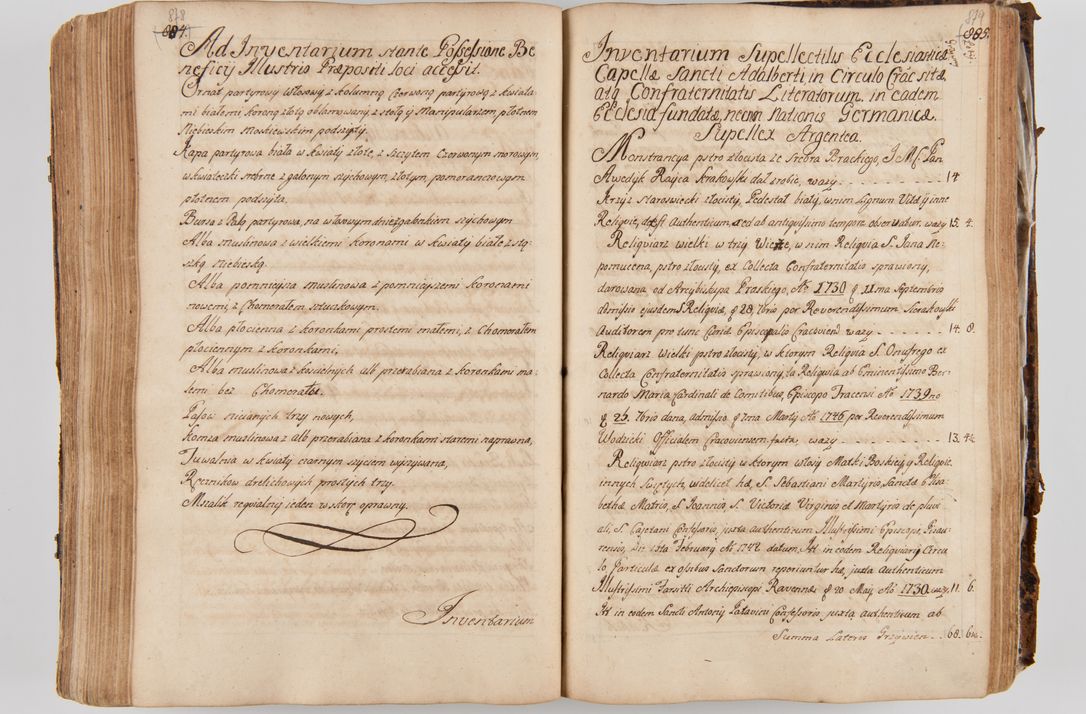 878
884.
Ad Inventarium stante Possessione Be
neficij Illustris Præpositi loci accessit.
Ornat partyrowy włosowy z kolumną czerwoną partyrową z kwiata
mi białemi koroną złotą oblamowany z stołą y Manipularzem, płotnem
Niebieskim Moskiewskim podszyty.
Kapa partyrowa biała w kwiaty złote, z szczytem czerwonym morowym,
w kwiateczki srebrne z galonem szychowym, złotym, pomaranczowym
płotnem podszyta.
Bursa z Palą partyrowa, na włosowym dnie z galonkiem szychowym
Alba muslinowa z wielkiemi koronami w kwiaty białe z stą,
szką niebieską.
Alba pomnieysza muslinowa z pomnieyszemi koronami
nowemi, z Chomerałem sztuczkowym.
Alba płocienna z koronkami prostemi małemi, z Chomerałem
płociennym z koronkami,
Alba muslinowa z koscielnych alb przerabiana z koronkami ma,
łemi bez Chomerału.
Pasow nicianych trzy nowych,
Komza muslinowa z alb przerabiana z koronkami staremi naprawna,
Tuwalnia w kwiaty czarnym szyciem wyszywana,
Ręcznikow drelichowych prostych trzy.
Mszalik requialny jeden w skorę oprawny.
Inventarium
879
885.
Inventarium Supellectilis Ecclesiasticæ
Capellæ Sancti Adalberti in Circulo Crac sitæ,
atq Confraternitatis Literatorum in eadem
Ecclesia fundatæ, necnon Nationis Germanicæ.
Supellex Argentea.
Monstrancya pstro złocista ze srebra Brackiego, J M. Pan
Awedyk Rayca Krakowski dał zrobić, waży 14
Krzyż staroswiecki złocisty, Pedestał biały, w nim Lignum Vitæ y inne
Religwie, deest Authenticum, sed ab antiquissimo tempore observabur. waży 15. 4.
Religwiarz wielki w trzy Wieże, w nim Religwia S. Jana Ne,
pomucena, pstro złocisty, ex Collecta Confraternitatis sprawiony,
darowana od Arcybiskupa Praskiego, Ao 1730 d 11ma Septembris
admissio ejusdem S Religviæ, d 28, 7bris per Reverendissimum Sierakowski
Auditorem pro tunc Curiæ Episcopalis Cracovien waży 14. 8.
Religwiarz wielki pstro złocisty, w ktorym Religwia S. Onufrego ex
Collecta Confraternitatis sprawiony, ta Religwia ab Eminentissimo Ber,
nardo Maria Cardinali de Comitibus, Episcopo Tracensi Ao 1739no
d 25. 7bris dana, admissio d 7ma Martij Ao 1746 per Reverendissimum
Wodzicki Officialem Cracoviensem facta, waży 13. 4½
Religwiarz pstro złocisty w ktorym włosy Matki Boskiey y Religwie
innych Swiętych, videlicet hæ, S. Sebastiani Martyris, Sanctæ Elisa
bethæ Matris, S. Joannis, S. Victoriæ Virginis et Martyris de pluvi
ali, S. Cajetani Confessoris, juxta authenticum Illustrissimi Episcopi,
Die 1sta February Ao 1742 datum, It in eodem Religwiarij Circu
lo Particulæ ex ossibus Sanctorum reperiantur hæ, juxta Authenticum
Illustrissimi Farsitti Archiepiscopi Ravennæ d 20 Maij Ao 1730. waży 11. 6.
It in eodem Sancti Antonij Patavini Confessoris juxta authenticum ab
Summa Lateris Grzywien 68. 6½